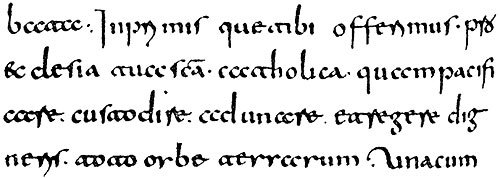 bata. Inprimis que tibi offerimus. pro
ecclesia tua scā. catholica. quam pacifi
care. custodire. adunare. et regere dig
neris. toto orbe terrarum. Unacum